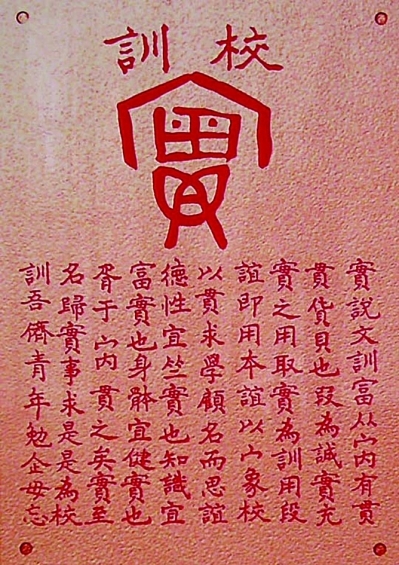 校訓
實
實說文訓富从宀內有貫
貫貨貝也叚為誠實充
實之用取實為訓用叚
誼即用本誼以宀象校
以貫求學顧名而思誼
德性宜竺實也知識宜
富實也身骵宜健實也
胥于宀內貫之矣實至
名歸實事求是是為校
訓吾儕青年勉企毋忘